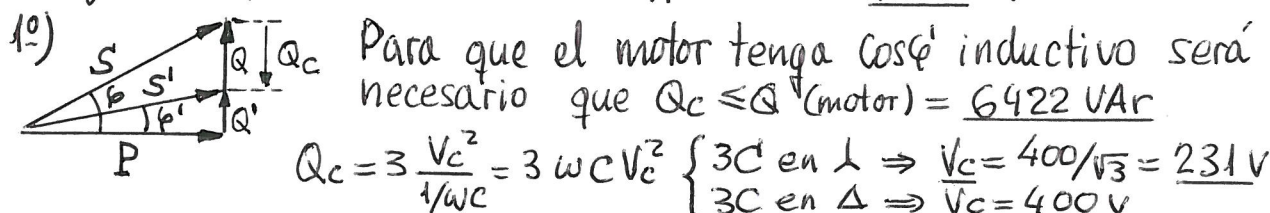 1º) Para que el motor tenga cosφ' inductivo será
necesario que Qc ≤ Q (motor) = 6422 VAr
S S' φ φ' Q Q' Qc P
Qc = 3 Vc²/(1/ωC) = 3 ω C Vc² { 3C en ⅄ ⇒ Vc = 400/√3 = 231 V
3C en Δ ⇒ Vc = 400 V